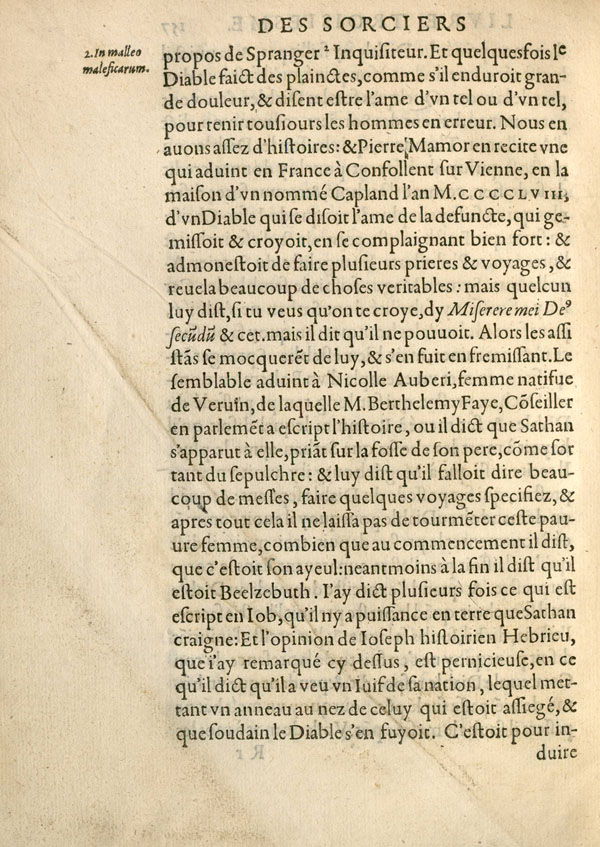 DES SORCIERS
2. In malleo
maleficarum.
propos de Spranger ² Inquisiteur. Et quelquesfois le
Diable faict des plainctes, comme s'il enduroit gran-
de douleur, & diſent eſtre l'ame d'vn tel ou d'vn tel,
pour tenir touſiours les hommes en erreur. Nous en
auons aſſez d'hiſtoires: & Pierre Mamor en recite vne
qui aduint en France à Confollent ſur Vienne, en la
maiſon d'vn nommé Capland l'an M.CCCCLVIII,
d'vn Diable qui ſe diſoit l'ame de la defuncte, qui ge-
miſſoit & croyoit, en ſe complaignant bien fort: &
admoneſtoit de faire pluſieurs prieres & voyages, &
reuela beaucoup de choſes veritables: mais quelcun
luy diſt, ſi tu veus qu'on te croye, dy Miſerere mei De⁹
ſecũdũ & cet. mais il dit qu'il ne pouuoit. Alors les aſſi
ſtãs ſe mocquerẽt de luy, & s'en fuit en fremiſſant. Le
ſemblable aduint à Nicolle Auberi, femme natifue
de Veruin, de laquelle M. Berthelemy Faye, Cõſeiller
en parlemẽt a eſcript l'hiſtoire, ou il dict que Sathan
s'apparut à elle, priãt ſur la foſſe de ſon pere, cõme ſor
tant du ſepulchre: & luy diſt qu'il falloit dire beau-
coup de meſſes, faire quelques voyages ſpecifiez, &
apres tout cela il ne laiſſa pas de tourmẽter ceſte pau-
ure femme, combien que au commencement il diſt,
que c'eſtoit ſon ayeul: neantmoins à la fin il diſt qu'il
eſtoit Beelzebuth. I'ay dict pluſieurs fois ce qui eſt
eſcript en Iob, qu'il ny a puiſſance en terre que Sathan
craigne: Et l'opinion de Ioſeph hiſtorien Hebrieu,
que i'ay remarqué cy deſſus, eſt pernicieuſe, en ce
qu'il dict qu'il a veu vn Iuif de ſa nation, lequel met-
tant vn anneau au nez de celuy qui eſtoit aſſiegé, &
que ſoudain le Diable s'en fuyoit. C'eſtoit pour in-
duire